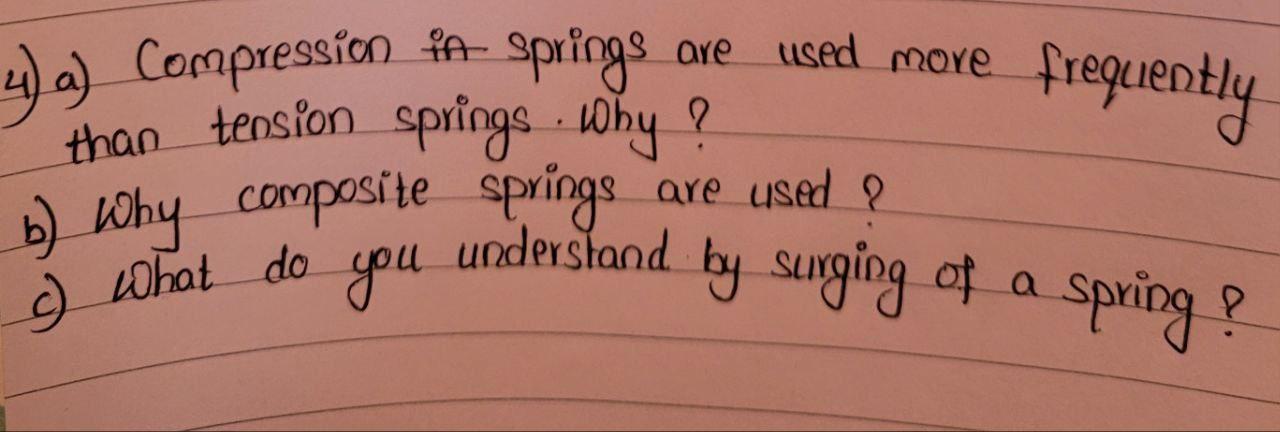 4) a) Compression in springs are used more frequently
than tension springs. Why ?
b) Why composite springs are used ?
c) What do you understand by surging of a spring ?